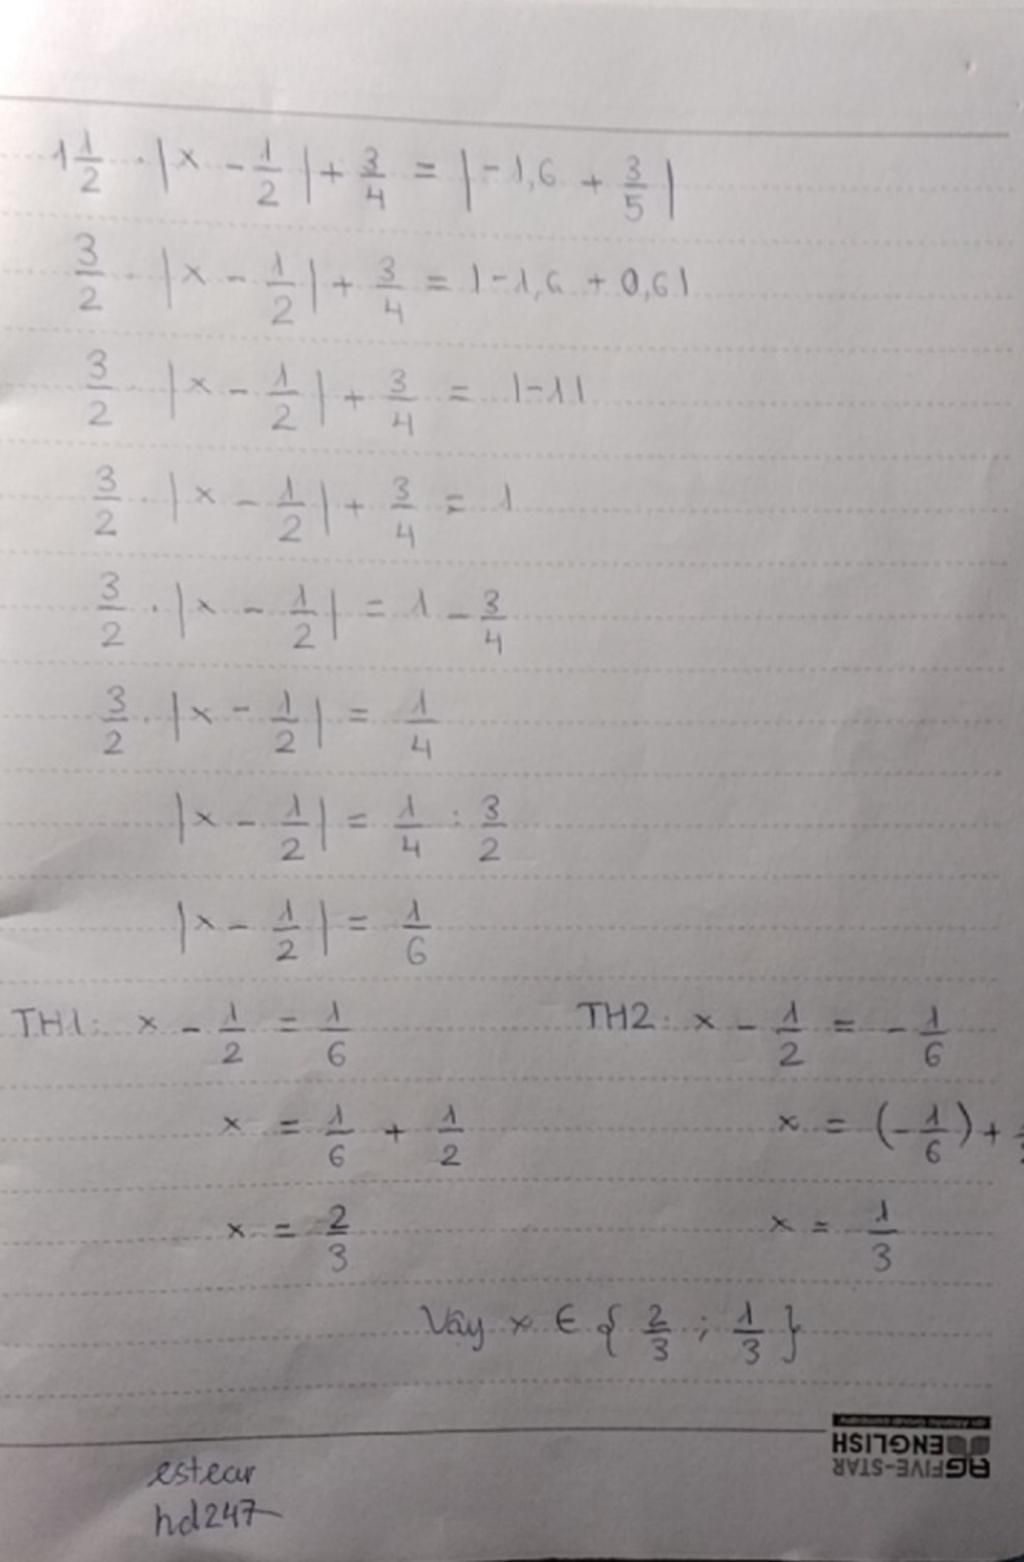 1 1/2 . |x - 1/2| + 3/4 = |-1,6 + 3/5|
3/2 . |x - 1/2| + 3/4 = |-1,6 + 0,6|
3/2 . |x - 1/2| + 3/4 = |-1|
3/2 . |x - 1/2| + 3/4 = 1
3/2 . |x - 1/2| = 1 - 3/4
3/2 . |x - 1/2| = 1/4
|x - 1/2| = 1/4 : 3/2
|x - 1/2| = 1/6
TH1: x - 1/2 = 1/6
x = 1/6 + 1/2
x = 2/3
TH2: x - 1/2 = - 1/6
x = (- 1/6) +
x = 1/3
Vây x ∈ { 2/3 ; 1/3 }
AGFIVE-STAR
ENGLISH
estear
hd247